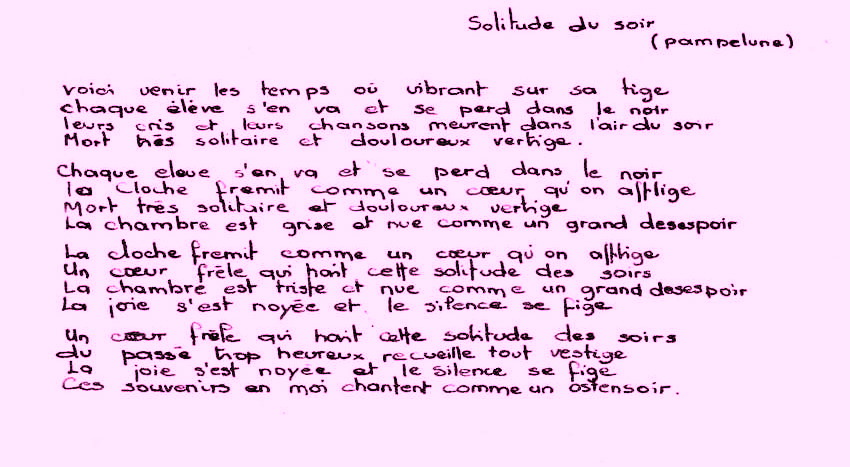 Solitude du soir
(pampelune)
Voici venir les temps où vibrant sur sa tige
chaque élève s'en va et se perd dans le noir
leurs cris et leurs chansons meurent dans l'air du soir
Mort très solitaire et douloureux vertige.
Chaque eleve s'en va et se perd dans le noir
la Cloche fremit comme un cœur qu'on afflige
Mort très solitaire et douloureux vertige
La chambre est grise et nue comme un grand desespoir
La cloche fremit comme un cœur qu'on afflige
Un cœur frêle qui hait cette solitude des soirs
La chambre est triste et nue comme un grand desespoir
La joie s'est noyée et le silence se fige
Un cœur frêle qui hait cette solitude des soirs
du passé trop heureux recueille tout vestige
La joie s'est noyée et le silence se fige
Ces souvenirs en moi chantent comme un ostensoir.